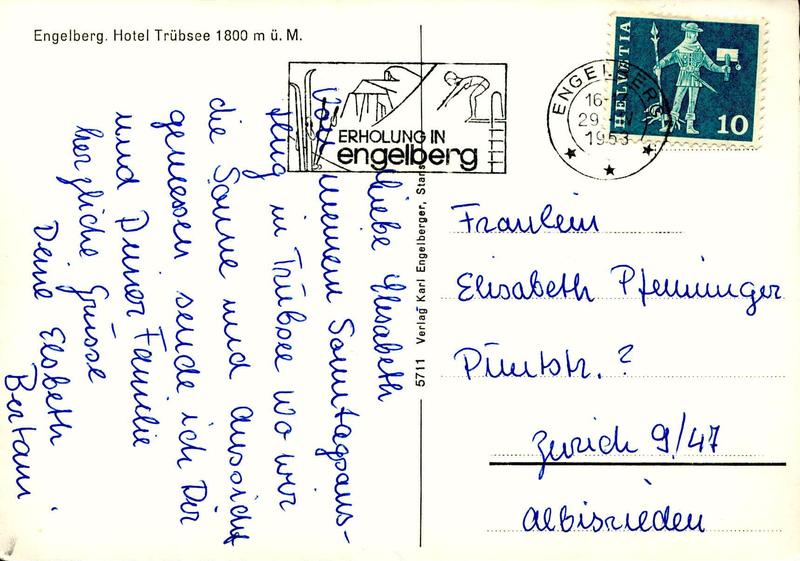 Engelberg. Hotel Trübsee 1800 m ü. M.
ERHOLUNG IN
engelberg
ENGELBERG
16
29.
HELVETIA
10
Liebe Elisabeth
Von meinem Sonntagsaus-
flug in Trübsee wo wir
die Sonne und Aussicht
geniessen sende ich Dir
und Deiner Familie
herzliche Grüsse
Deine Elsbeth
5711 Verlag Karl Engelberger, Stans
Fraulein
Elisabeth Pfenninger
?
Zurich 9/47
Albisrieden